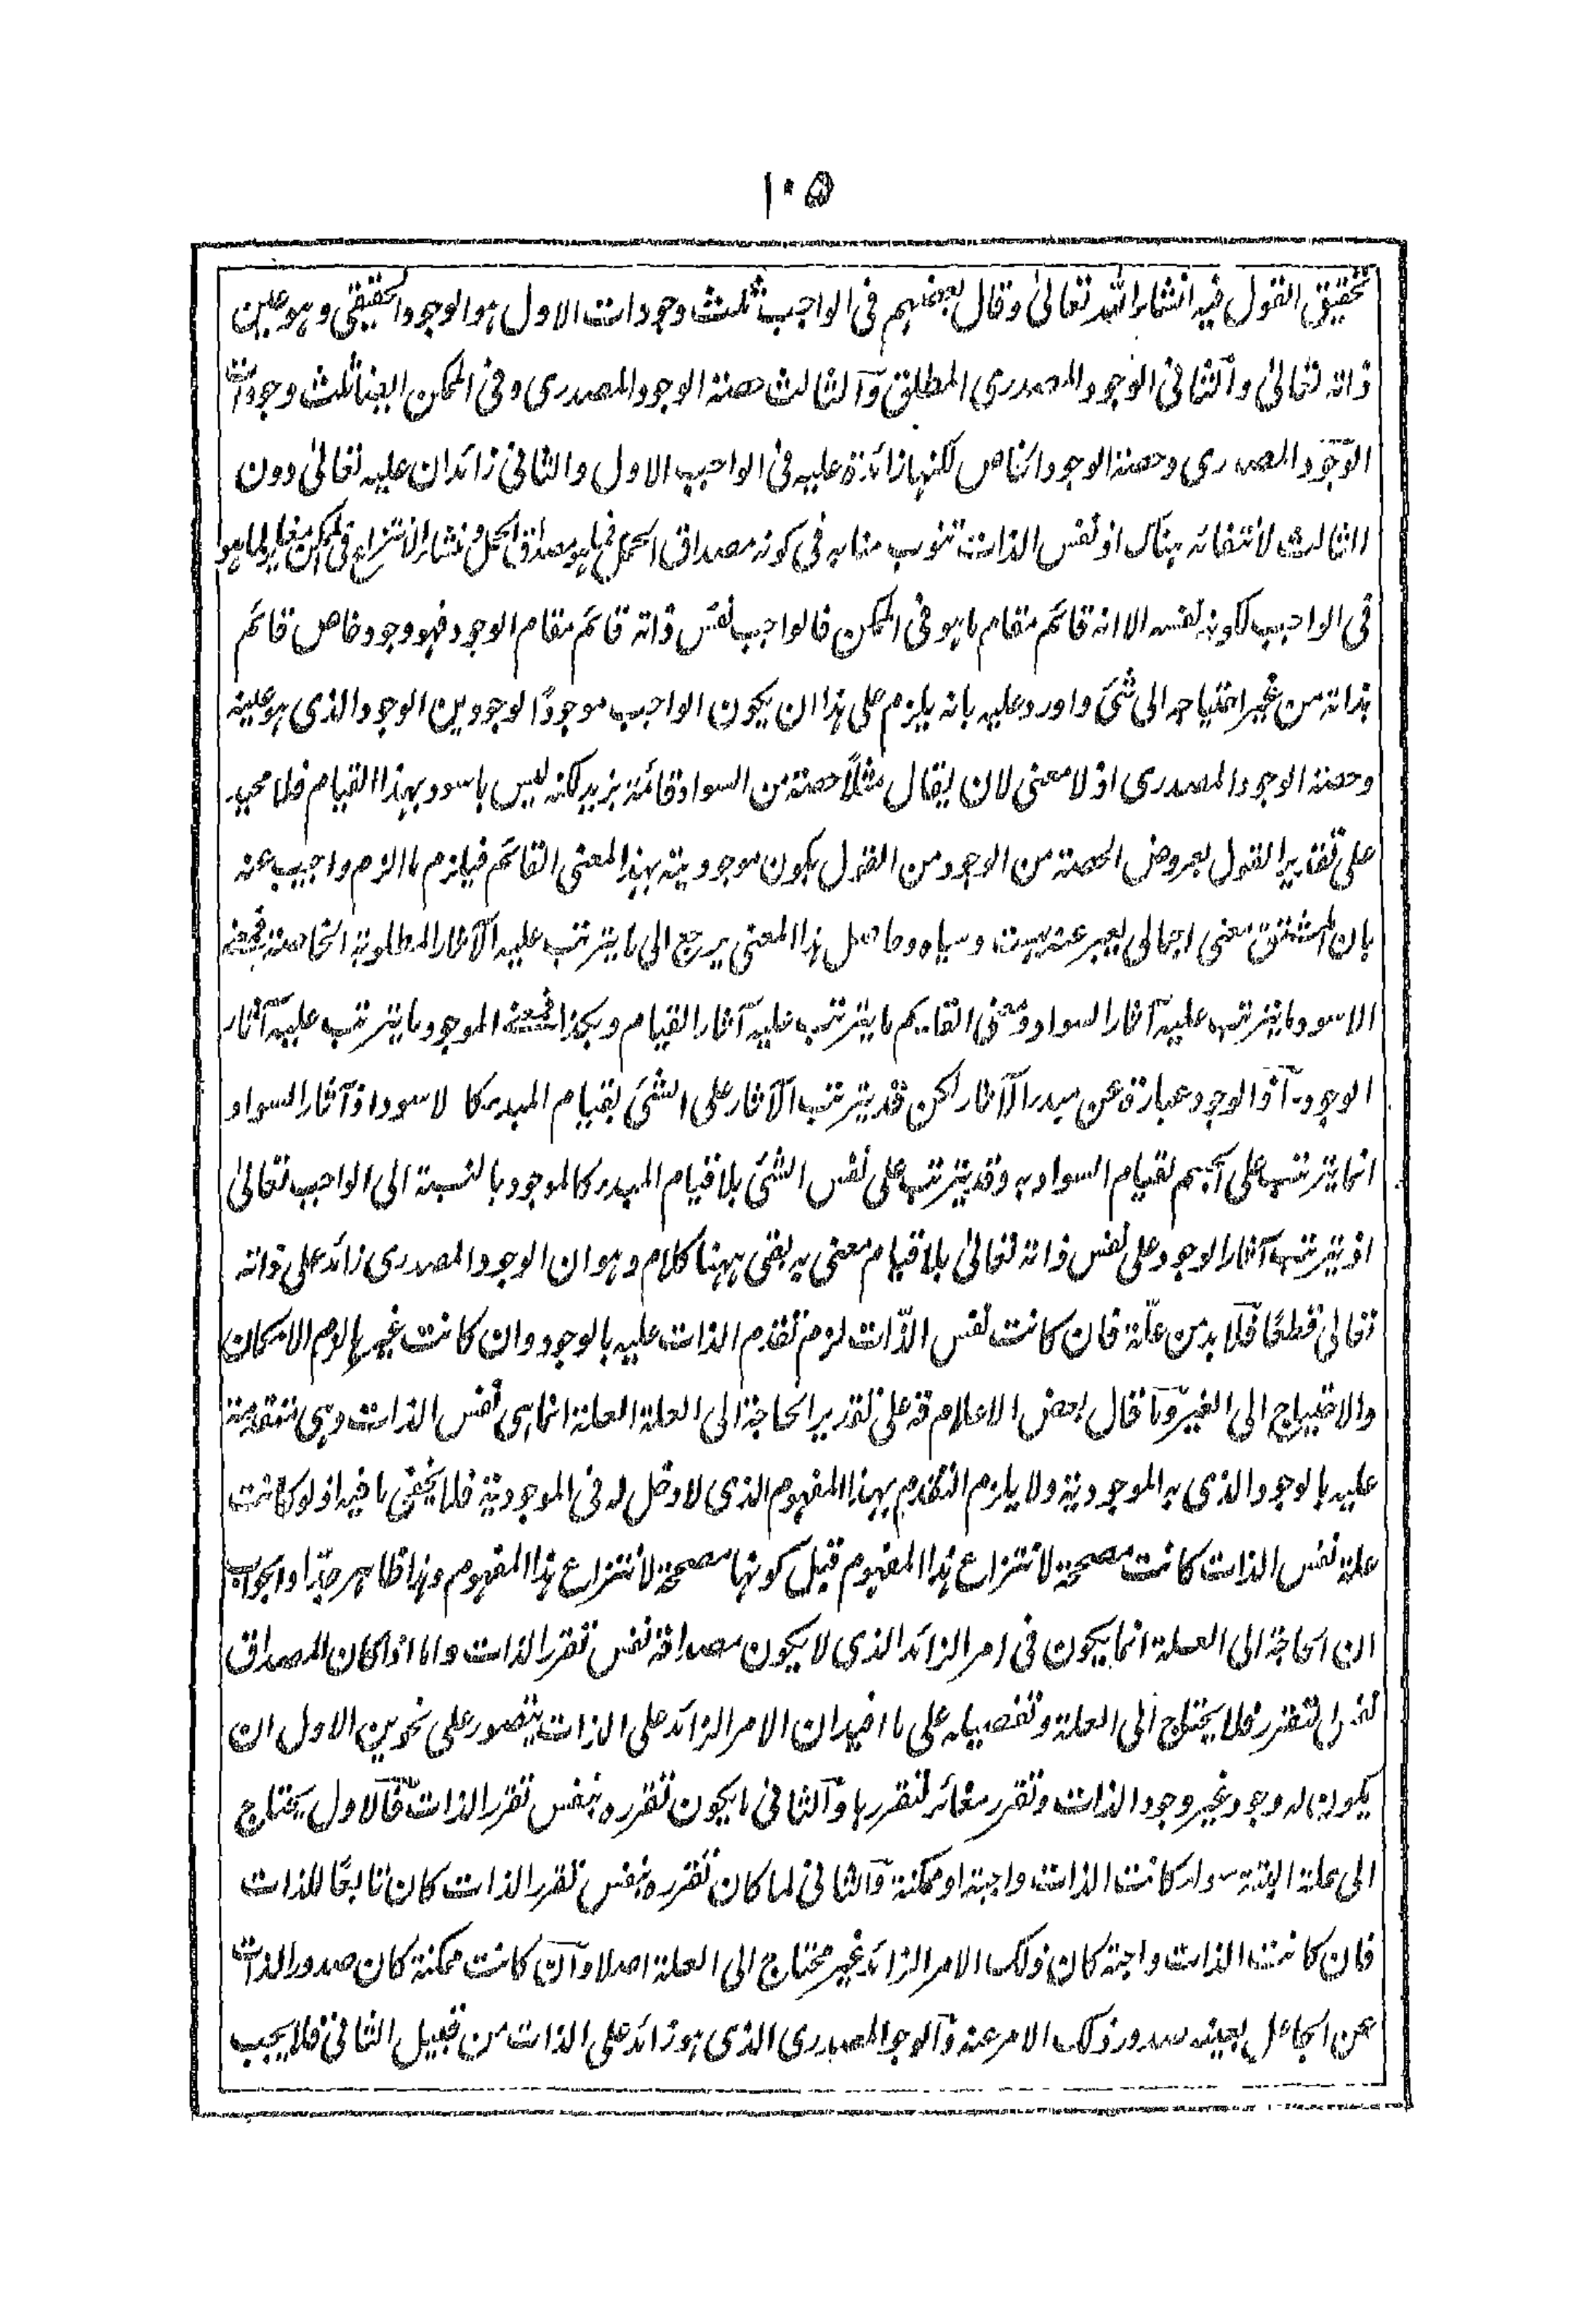 ١٠۵
تحقيق القول فيه انشاء الله تعالىٰ وقال بعضهم فى الواجب ثلث وجودات الاول هو الوجود الحقيقى و هو عين
ذاته تعالىٰ والثانى الوجود المصدرى المطلق والثالث حصة الوجود المصدرى وفى الممكن ايضا ثلث وجودات
الوجود المصدرى وحصة الوجود الخاص لكنها زائدة عليه فى الواجب الاول والثانى زائدان عليه تعالىٰ دون
الثالث لانتفائه هناك اذ نفس الذات تنوب منابه فى كونه مصداق الحمل فما هو مصداق الحمل ومنشاء الانتزاع فى الممكن مغاير لما هو
فى الواجب لكونه نفسه الا انه قائم مقام ما هو فى الممكن فالواجب نفس ذاته قائم مقام الوجود فهو وجود خاص قائم
بذاته من غير احتياجه الى شئ واورد عليه بانه يلزم على هذا ان يكون الواجب موجودًا لوجودين الوجود الذى هو عينه
وحصة الوجود المصدرى اذ لا معنى لان يقال مثلًا حصة من السواد قائمة بزيد لكنه ليس باسود بهذا القيام فلا محيد
على تقدير القول بعروض الحصة من الوجود من القول بكون موجوديته بهذا المعنى القائم فيلزم ما الزم واجيب عنه
بان المشتق معنى اجمالى يعبر عنه بهست وسياه وحاصل هذا المعنى يرجع الى ما يترتب عليه الآثار المطلوبة الخاصة فمعنى
الاسود ما يترتب عليه آثار السواد ومعنى القايم ما يترتب عليه آثار القيام وبكذا فمعنى الموجود ما يترتب عليه آثار
الوجود اذ الوجود عبارة عن مبدء الآثار لكن قد يترتب الآثار على الشئ بقيام المبدء كا لاسود اذ آثار السواد
انما يترتب على الجسم لقيام السواد به وقد يترتب على نفس الشئ بلا قيام المبدء كالموجود بالنسبة الى الواجب تعالىٰ
اذ يترتب آثار الوجود على نفس ذاته تعالىٰ بلا قيام معنى به بقى ههنا كلام وهو ان الوجود المصدرى زائد على ذاته
تعالىٰ قطعًا فلا بد من علّة فان كانت نفس الذات لزم تقدم الذات عليه بالوجود وان كانت غيرها لزم الامكان
والاحتياج الى الغير وما قال بعض الاعلام قه على تقدير الحاجة الى العلة العلة انما هى نفس الذات وهى متقدمة
عليه بالوجود الذى به الموجودية ولا يلزم التقدم بهذا المفهوم الذى لا دخل له فى الموجودية فلا يخفى ما فيه اذ لو كانت
علة نفس الذات كانت مصححة لانتزاع هذا المفهوم قبل كونها مصححة لانتزاع هذا المفهوم وهذا ظاهر جدًا والجواب
ان الحاجة الى العلة انما يكون فى امر الزائد الذى لا يكون مصداقه نفس تقرر الذات واما اذا كان المصداق
نفس التقرر فلا يحتاج الى العلة وتفصيله على ما افيد ان الامر الزائد على الذات يتصور على نحوين الاول ان
يكون له وجود غير وجود الذات وتقرر مغائر لتقررها والثانى ما يكون تقرره بنفس تقرر الذات فالاول يحتاج
الى علة البتة سواء كانت الذات واجبة او ممكنة والثانى لما كان تقرره بنفس تقرر الذات كان تابعًا للذات
فان كانت الذات واجبة كان ذلك الامر الزائد غير محتاج الى العلة اصلا وان كانت ممكنة كان صدور الذات
عن الجاعل بعينه صدور ذلك الامر عنه والوجود المصدرى الذى هو زائد على الذات من قبيل الثانى فلا يجب